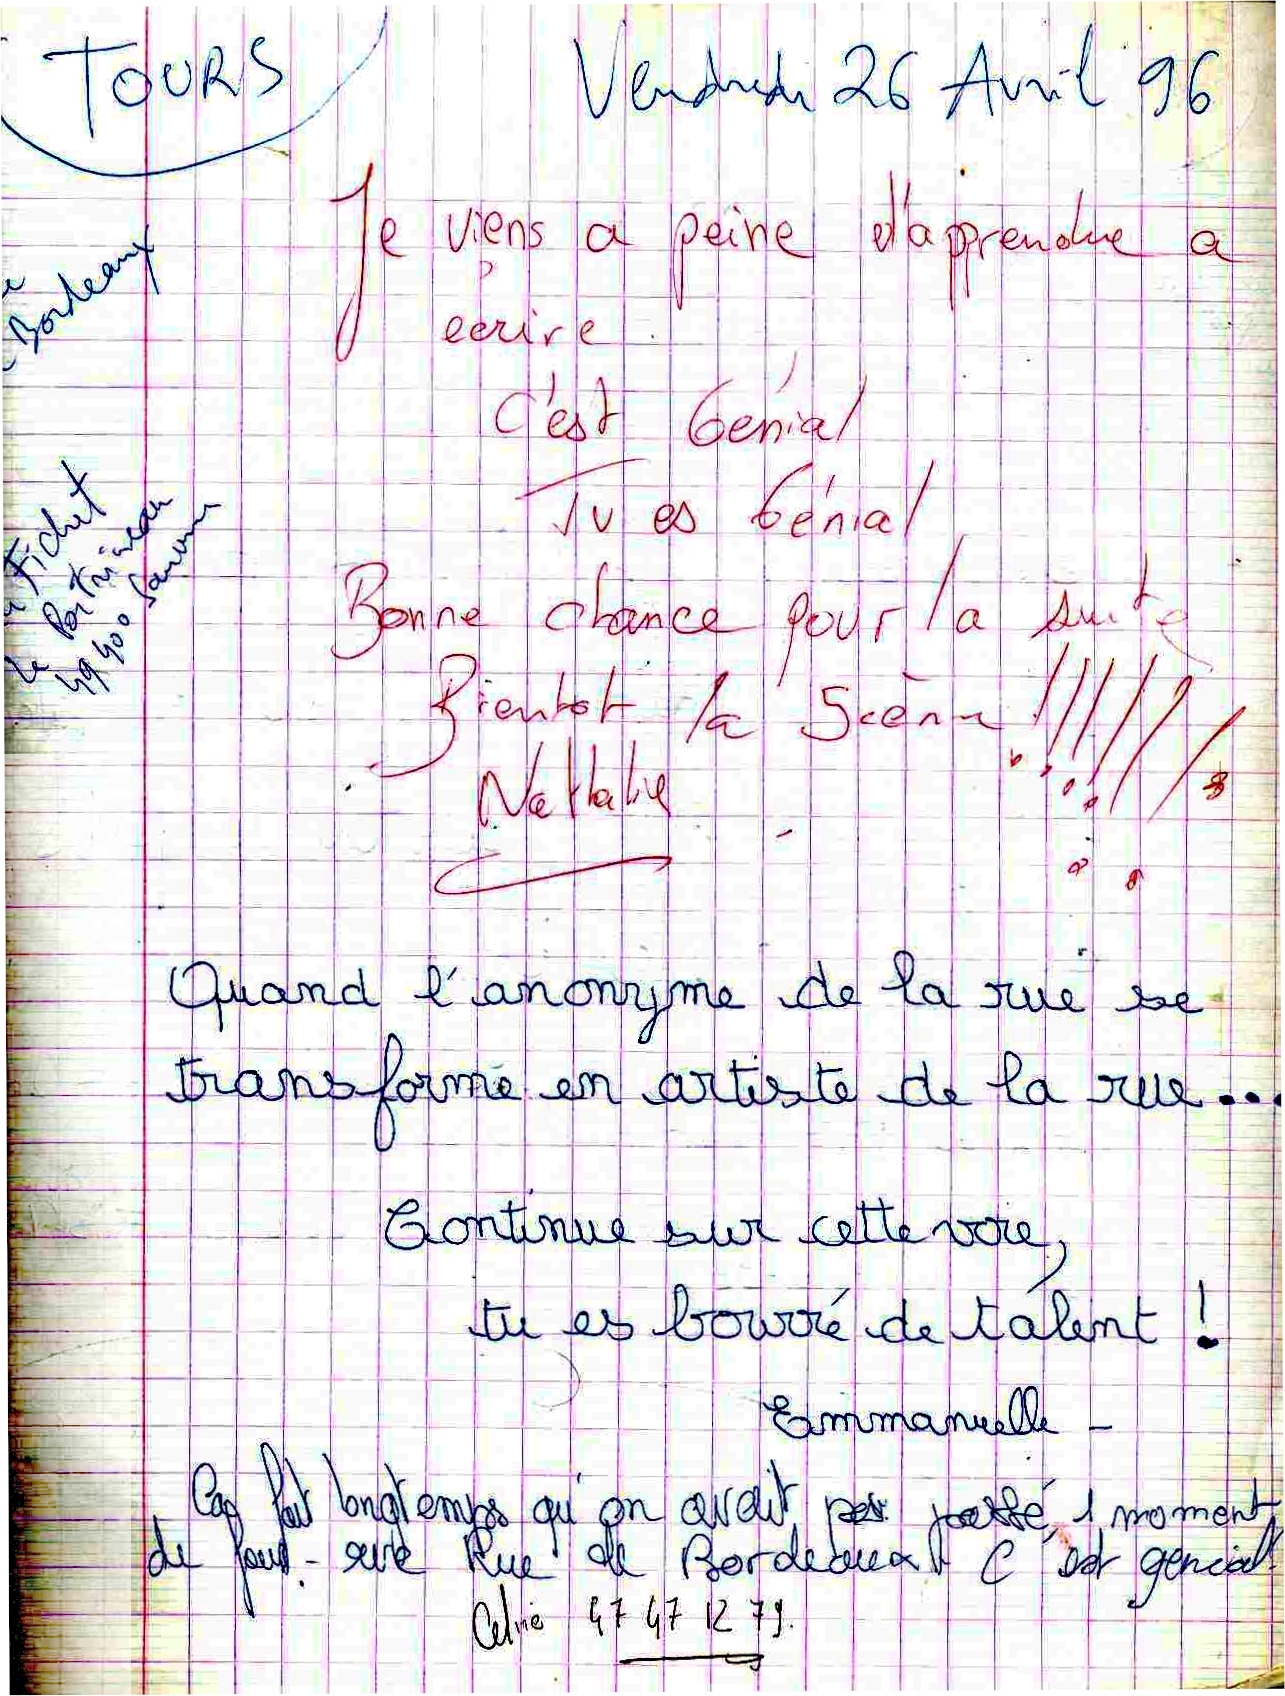 TOURS
Vendredi 26 Avril 96
Bordeaux
Je viens a peine d'apprendre a
ecrire.
C'est Génial
Tu es Génial
Bonne chance pour la suite
Bientot la Scène !!!!!!
Nathalie
Fichet
49400 Saumur
Quand l'anonyme de la rue se
transforme en artiste de la rue...
Continue sur cette voie,
tu es bourré de talent !
Emmanuelle -
Caa fait longtemps qu'on avait pas passé 1 moment
de fou - sur Rue de Bordeaux C'est genial
47 47 12 79.